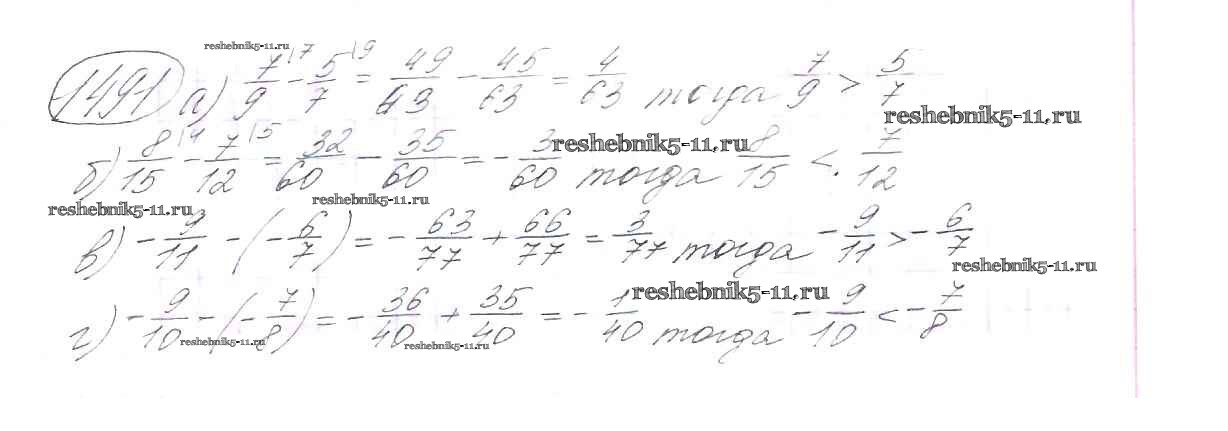 reshebnik5-11.ru
1491 а) 7/9 |7 - 5/7 |9 = 49/63 - 45/63 = 4/63 тогда 7/9 > 5/7
reshebnik5-11.ru
б) 8/15 |4 - 7/12 |5 = 32/60 - 35/60 = - 3/60 тогда 8/15 < 7/12
reshebnik5-11.ru
reshebnik5-11.ru reshebnik5-11.ru
в) - 9/11 - (- 6/7) = - 63/77 + 66/77 = 3/77 тогда - 9/11 > - 6/7
reshebnik5-11.ru
г) - 9/10 - (- 7/8) = - 36/40 + 35/40 = - 1/40 тогда - 9/10 < - 7/8
reshebnik5-11.ru
reshebnik5-11.ru reshebnik5-11.ru